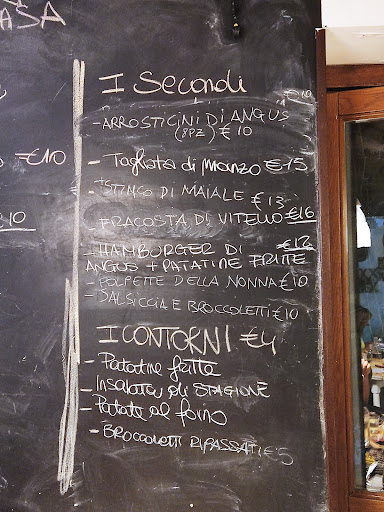 ASA
I Secondi
€10
- ARROSTICINI DI ANGUS
(8PZ) €10
- Tagliata di manzo €15
€10
- STINCO DI MAIALE €13
- FRACOSTA DI VITELLO €16
10
- HAMBURGER DI €12
ANGUS + PATATINE FRITTE
- POLPETTE DELLA NONNA €10
- SALSICCIA E BROCCOLETTI €10
I CONTORNI €4
- Patatine fritte
- Insalata di STAGIONE
- Patate al forno
- BROCCOLETTI RIPASSATI €5